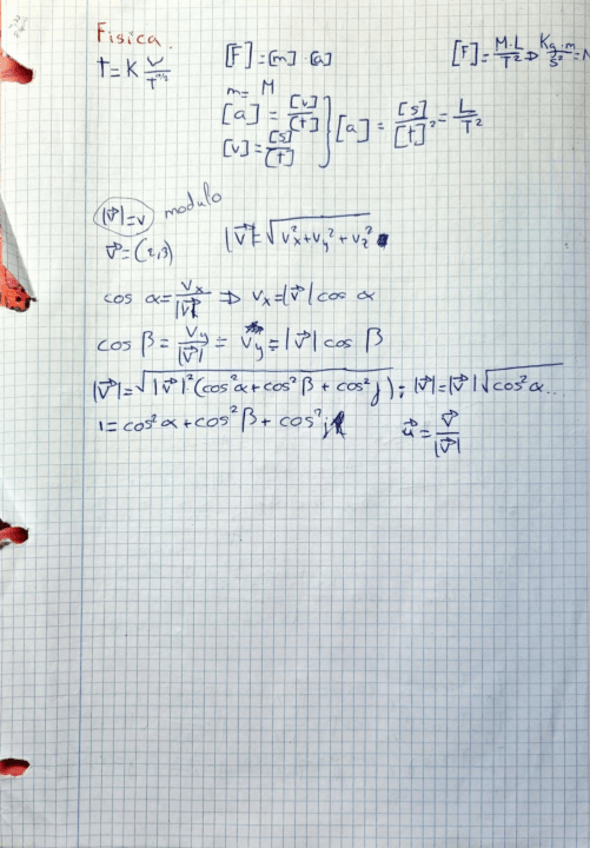 Fisica.
t=K V/T^m/2 [F]=[m]·[a] [F]=M·L/T² ⇒ Kg·m/s²=N
m= M
[a]=[v]/[t]
[v]=[s]/[t] } [a]=[s]/[t]²=L/T²
|v⃗|=v modulo
v⃗=(2,3) |v⃗|=√(vx²+vy²+vz²)
cos α=vx/|v⃗| ⇒ vx=|v⃗| cos α
cos β=vy/|v⃗| = vy=|v⃗| cos β
|v⃗|=√(|v⃗|²(cos²α+cos²β+cos²j)); |v⃗|=|v⃗|√cos²α...
1=cos²α+cos²β+cos²j u⃗=v⃗/|v⃗|